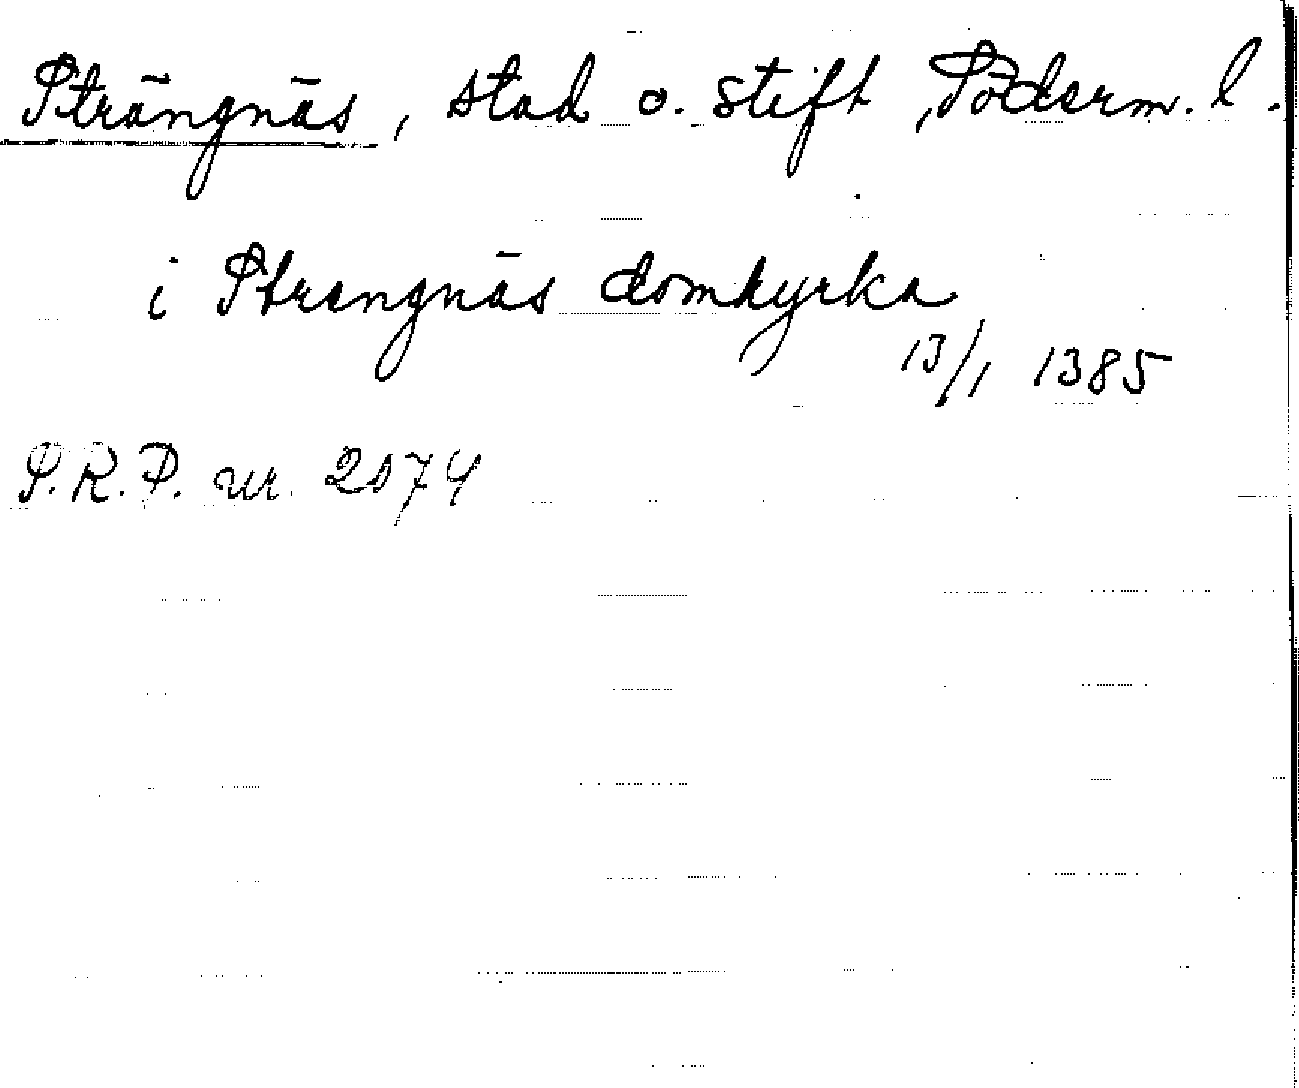 Strängnäs, stad o. stift, Söderm. l.
i Strengnäs domkyrka
13/1 1385
S.R.P. nr. 2074